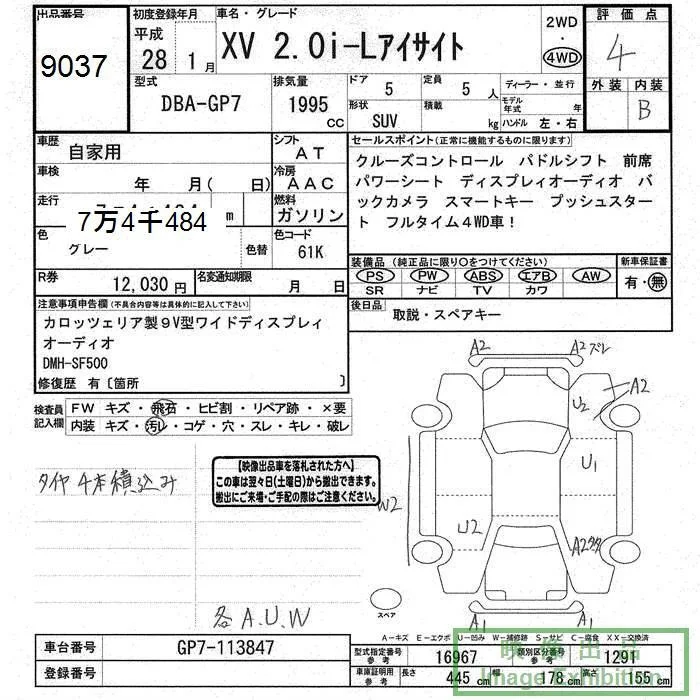 出品番号
9037
初度登録年月
平成
28 1月
車名・グレード
XV 2.0i-Lアイサイト
2WD
・
4WD
評価点
4
外装 内装
B
型式
DBA-GP7
排気量
1995
CC
ドア
5
定員
5
人
形状
SUV
積載
kg
ディーラー・並行
モデル
年式
年
ハンドル 左・右
車歴
自家用
シフト
AT
車検
年 月( 日)
冷房
AAC
走行
7万4千484
m
燃料
ガソリン
色
グレー
色替
色コード
61K
R券
12,030円
名変通知期限
月 日
セールスポイント(正常に機能するものに限ります)
クルーズコントロール パドルシフト 前席
パワーシート ディスプレィオーディオ バ
ックカメラ スマートキー プッシュスター
ト フルタイム4WD車!
装備品(純正品に限り○をつけてください)
PS PW ABS エアB AW
SR ナビ TV カワ
新車保証書
有・無
後日品
取説・スペアキー
注意事項申告欄(不具合内容等は具体的に記入して下さい)
カロッツェリア製9V型ワイドディスプレィ
オーディオ
DMH-SF500
修復歴 有〔箇所 〕
検査員
記入欄
FW キズ・飛石・ヒビ割・リペア跡・×要
内装 キズ・汚レ・コゲ・穴・スレ・キレ・破レ
タイヤ4本積込み
【映像出品車を落札された方へ】
この車は翌々日(土曜日)から搬出できます。
搬出にご来場・ご手配の際はご注意ください。
各A.U.W
A2
A2ズレ
A2
U2
U1
W2
U2
A1
A1
スペア
A-キズ E-エクボ U-凹み W-補修跡 S-サビ C-腐食 XX-交換済
車台番号
GP7-113847
登録番号
型式指定番号
参考
16967
類別区分番号
参考
1291
車庫証明用
参考
長さ
445 cm
幅
178 cm
高さ
155 cm
映像出品
Image Exhibition